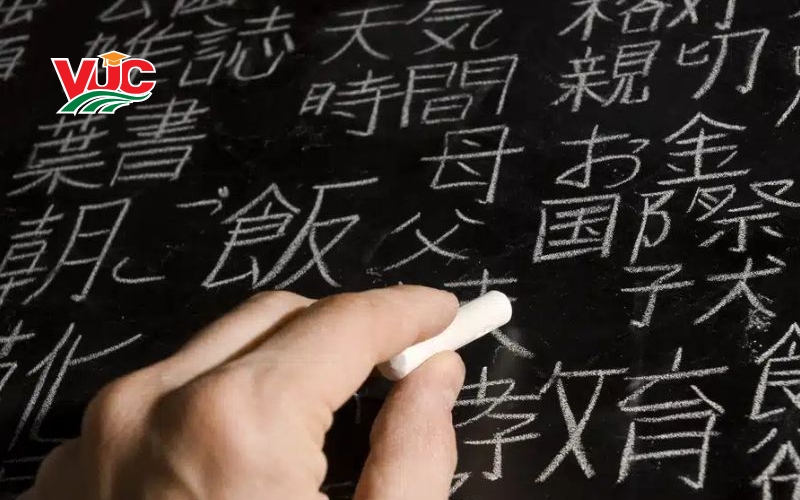 VUC
雑誌 天気
時間 親切
葉書 母 お金
朝ご飯 父 国際
子犬
化 教育